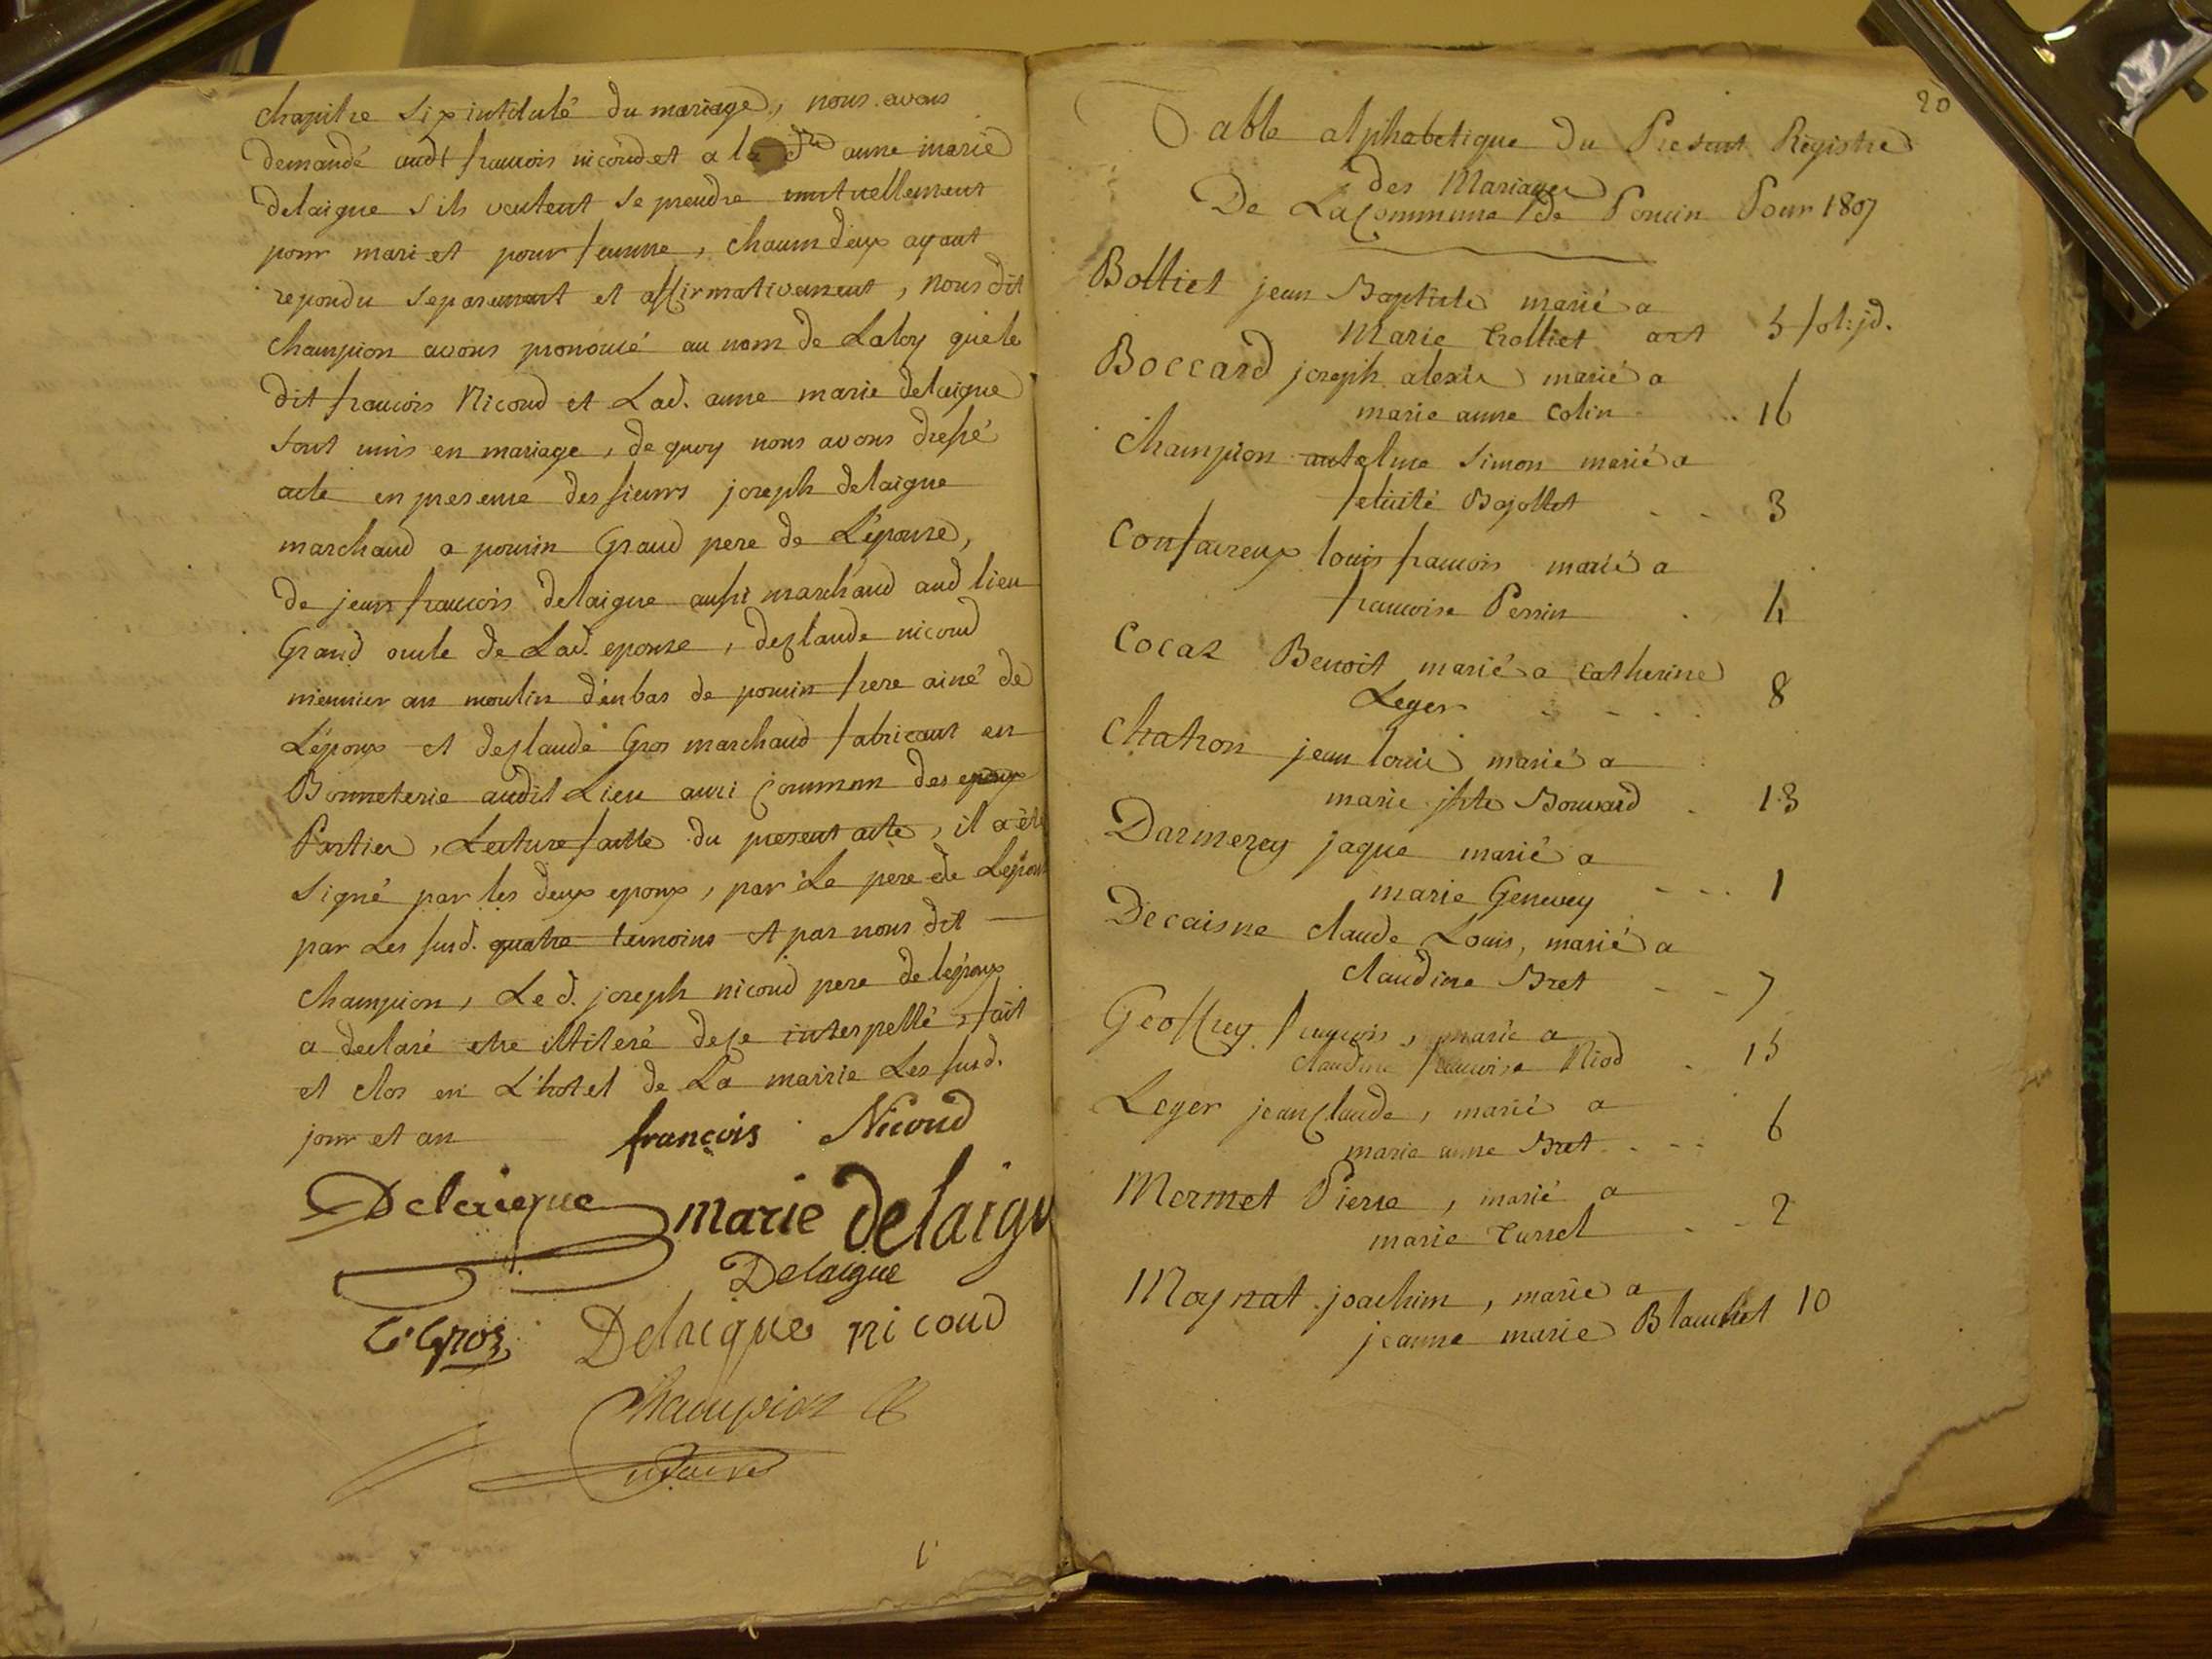 chapitre six intitulé du mariage, nous avons
demandé audt francois nicoud et a la dlle anne marie
delaigue s'ils veulent se prendre mutuellement
pour mari et pour femme, chacun d'eux ayant
repondu separement et affirmativement, nous dit
champion avons prononcé au nom de La loy que le
dit francois Nicoud et Lad. anne marie delaigue
sont unis en mariage, de quoy nous avons dressé
acte en presence des sieurs joseph delaigue
marchand a poncin Grand pere de L'epouse,
de jean francois delaigue aussi marchand aud lieu
Grand oncle de Lad. epouse, de Claude nicoud
meunier au moulin d'enbas de poncin frere ainé de
L'epoux et de Claude Gros marchand fabricant en
Bonneterie audit Lieu ami Commun des
Parties, Lecture faitte du present acte, il a été
signé par les deux epoux, par Le pere de Lepouse
par Les susd. quatre temoins et par nous dit
champion, Le d. joseph nicoud pere de lepoux
a declaré etre illiteré de ce interpellé, fait
et clos en L'hotel de La mairie Les susd.
jour et an françois Nicoud
Delaigue marie delaigu
Delaigue
C. Gros Delaigue nicoud
Champion
20
Table alphabetique du Present Régistre
des Mariages
De La Commune de Poncin Pour 1807
Bolliet jean Baptiste marié a
Marie trolliet art 5 fol: jd.
Boccard joseph alexis marié a
marie anne Colin 16
Champion antelme Simon marié a
felicité Bajollet 3
Confavreux louis francois marié a
francoise Perrin 4
Cocaz Benoit marié a Catherine
Leger 8
Chatron jean louis marié a
marie jhte Bouvard 13
Darmezey jaque marié a
marie Genevey 1
Decaisne claude Louis, marié a
claudine Bret 7
Geoffrey francois, marié a
claudine francoise Niod 15
Leger jean Claude, marié a
marie anne Bret 6
Mermet Pierre, marié a
marie Cursel 2
Moynat joachim, marié a
jeanne marie Blanchet 10